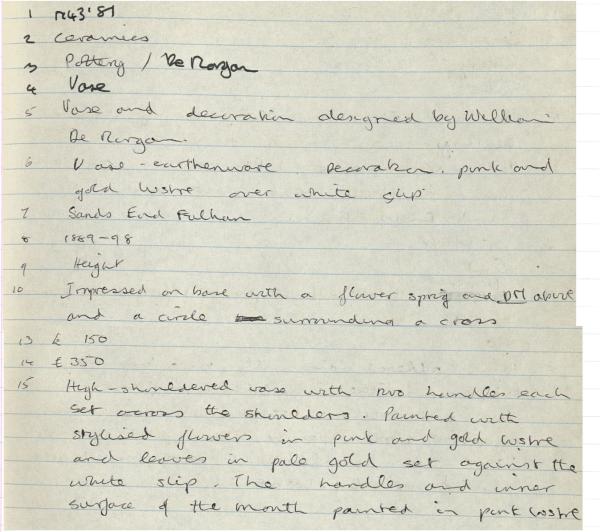 1 M43'81
2 Ceramics
3 Pottery / De Morgan
4 Vase
5 Vase and decoration designed by William
De Morgan.
6 Vase - earthenware Decoration. pink and
gold lustre over white slip.
7 Sands End Fulham
8 1889-98
9 Height
10 Impressed on base with a flower sprig and DM above
and a circle surrounding a cross
13 £ 150
14 £350
15 High-shouldered vase with two handles each
set across the shoulders. Painted with
stylised flowers in pink and gold lustre
and leaves in pale gold set against the
white slip. The handles and inner
surface of the mouth painted in pink lustre